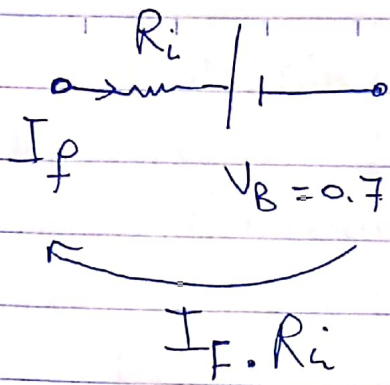 Ri
If
VB = 0.7
IF. Ri